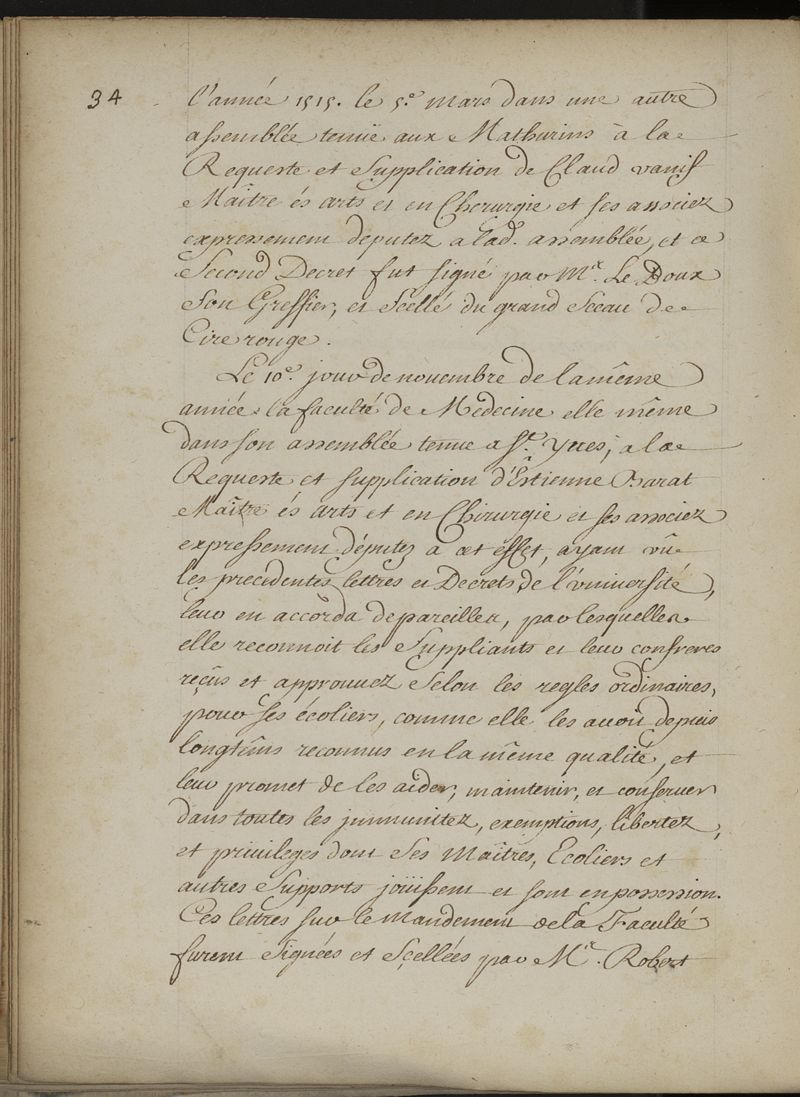 34
l'année 1515. le 5.e mars dans une autre
assemblée tenuë aux Mathurins à la
Requeste et Supplication de Claud vanif
Maître és arts et en Cherurgie et ses associez
expressement deputez a lad. assemblée, et ce
Second Decret fut signé par Mr. Le Doux
Son Greffier, et Scellé du grand Sceau de
Cire rouge.
Le 10.e jour de nouembre de la même
année la faculté de Medecine elle même
dans son assemblée tenue a St. Yues, a la
Requeste et supplication d'Estienne Barat
Maître és arts et en Chirurgie et ses associez
expressement députez à cet effet, ayant vû
les precedentes lettres et Decrets de l'vniuersité,
leur en accorda de pareilles, par lesquelles
elle reconnoit les Suppliants et leur confreres
reçûs et approuuez Selon les regles ordinaires,
pour ses écoliers, comme elle les auoit depuis
longtêms reconnus en la même qualité, et
leur promet de les aider, maintenir, et conseruer
dans toutes les jmmunitez, exemptions, libertez,
et priuileges dont Ses Maîtres, Ecoliers et
autres Supports joüissent et sont en possession.
Ces lettres sur le Mandement de la Faculté
furent Signées et Scellées par Mr. Robert